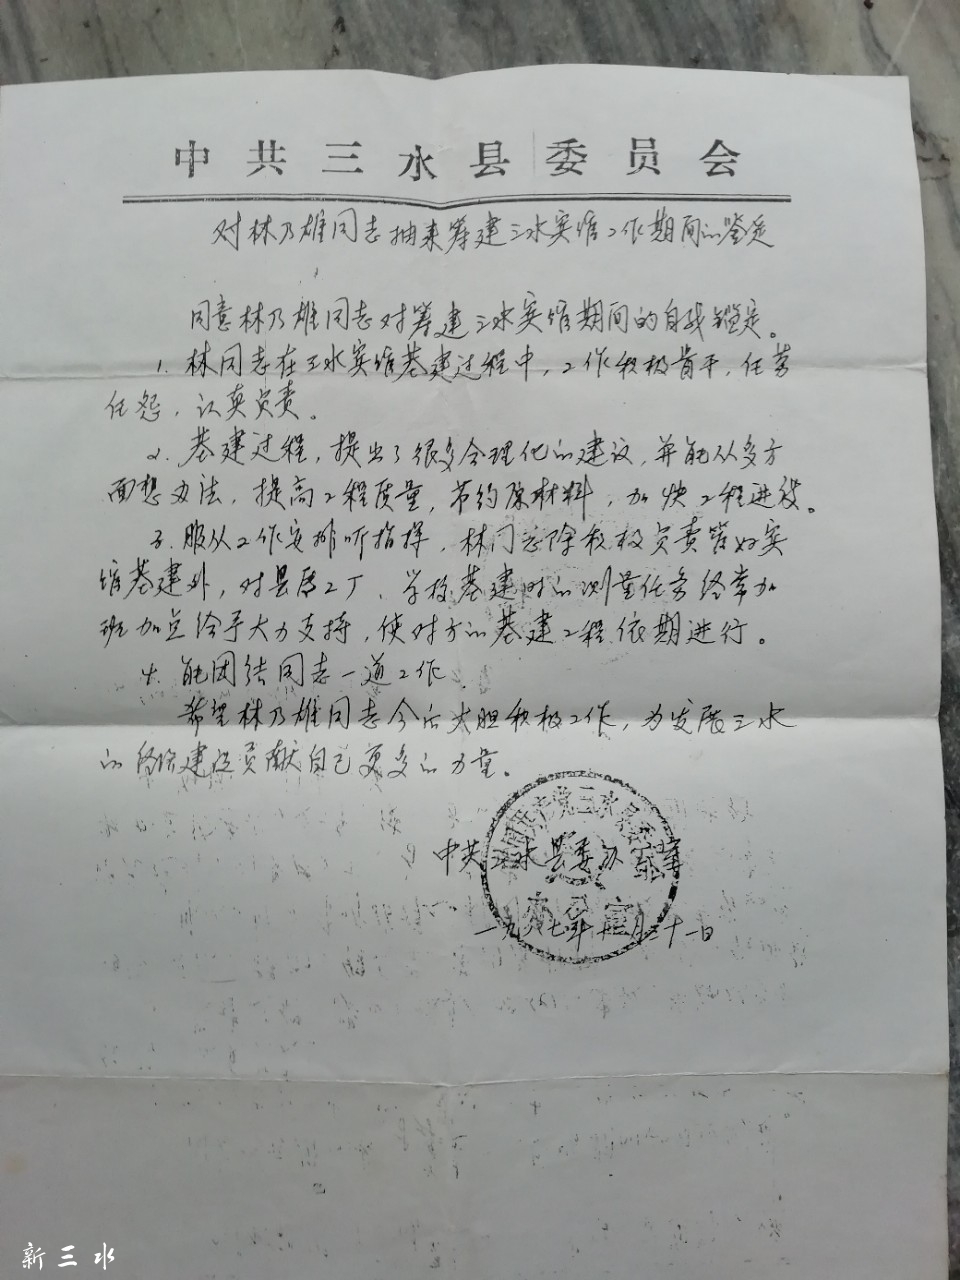 中共三水县委员会
对林乃雄同志抽来筹建三水宾馆工作期间的鉴定
同意林乃雄同志对筹建三水宾馆期间的自我鑑定。
1. 林同志在三水宾馆基建过程中，工作积极肯干，任劳
任怨，认真负责。
2. 基建过程，提出了很多合理化的建议，并能从多方
面想办法，提高工程质量，节约原材料，加快工程进设。
3. 服从工作安排听指挥，林同志除积极负责管好宾
馆基建外，对县属工厂、学校基建时的测量任务经常加
班加点给予大力支持，使对方的基建工程依期进行。
4. 能团结同志一道工作。
希望林乃雄同志今后大胆积极工作，为发展三水
的经济建设贡献自己更多的力量。
中共三水县委办公室
中国共产党三水县委员会
办公室
一九八七年十二月三十一日
新三水